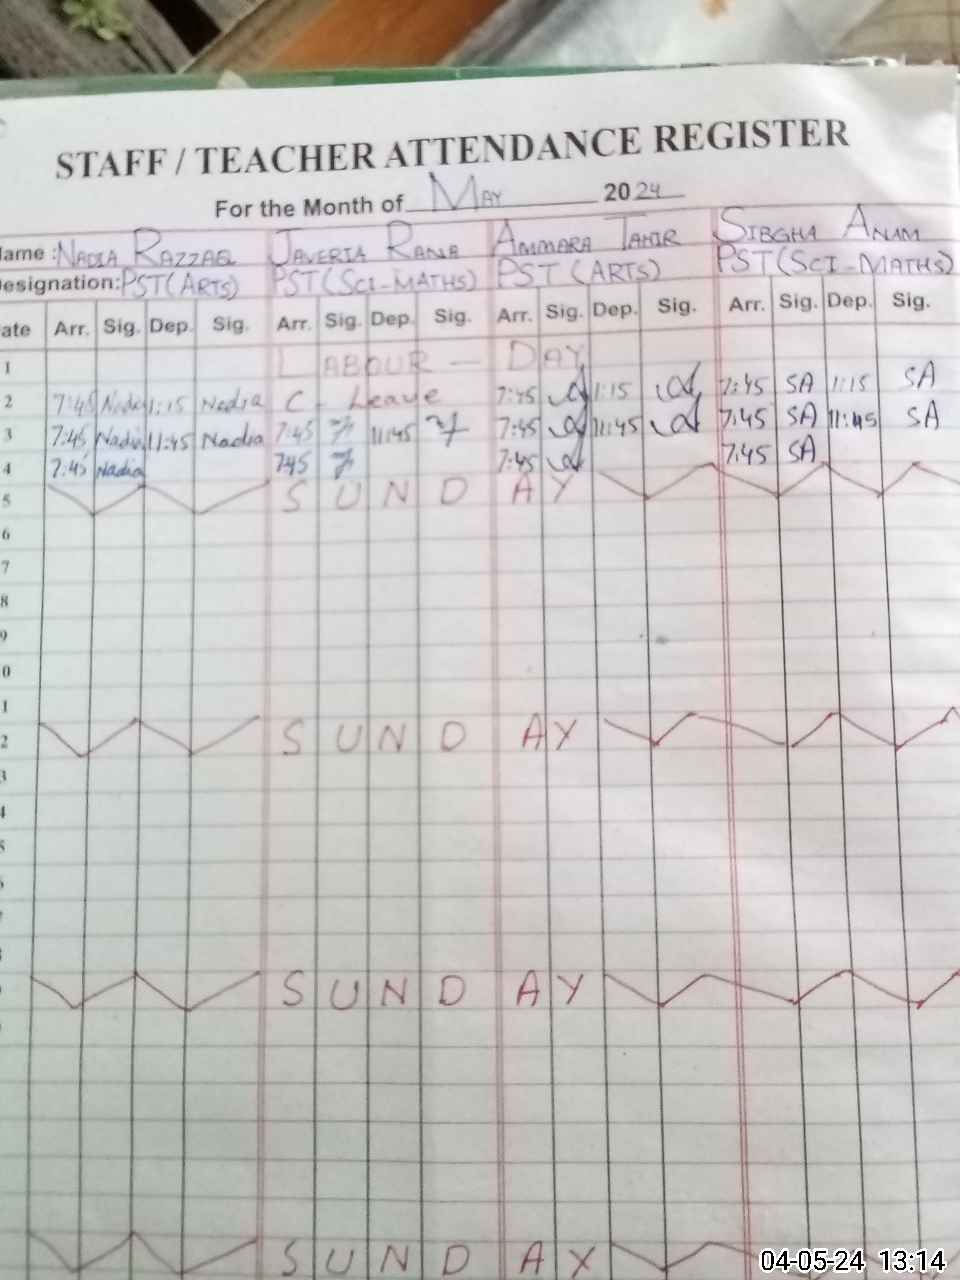 STAFF / TEACHER ATTENDANCE REGISTER
For the Month of May 2024
ame : NADIA RAZZAQ JAVERIA RANA AMMARA TAHIR SIBGHA ANAM
esignation: PST(ARTS) PST(SCI-MATHS) PST (ARTS) PST(SCI-MATHS)
ate Arr. Sig. Dep. Sig. Arr. Sig. Dep. Sig. Arr. Sig. Dep. Sig. Arr. Sig. Dep. Sig.
1 LABOUR - DAY
2 7:45 Nadia 1:15 Nadia C - Leave 7:45 1:15 7:45 SA 1:15 SA
3 7:45 Nadia 11:45 Nadia 7:45 11:45 7:45 11:45 7:45 SA 11:45 SA
4 7:45 Nadia 7:45 7:45 7:45 SA
5 SUNDAY
6
7
8
9
0
1
2 SUNDAY
3
4
5
SUNDAY
SUNDAY
04-05-24 13:14